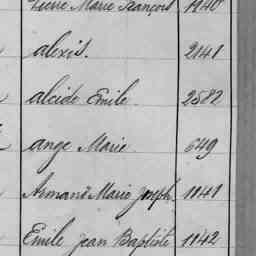 Pierre Marie François 1140
alexis. 2141
alcide Emile 2582
ange Marie 649
Armand Marie Joseph. 1141
Emile Jean Baptiste 1142